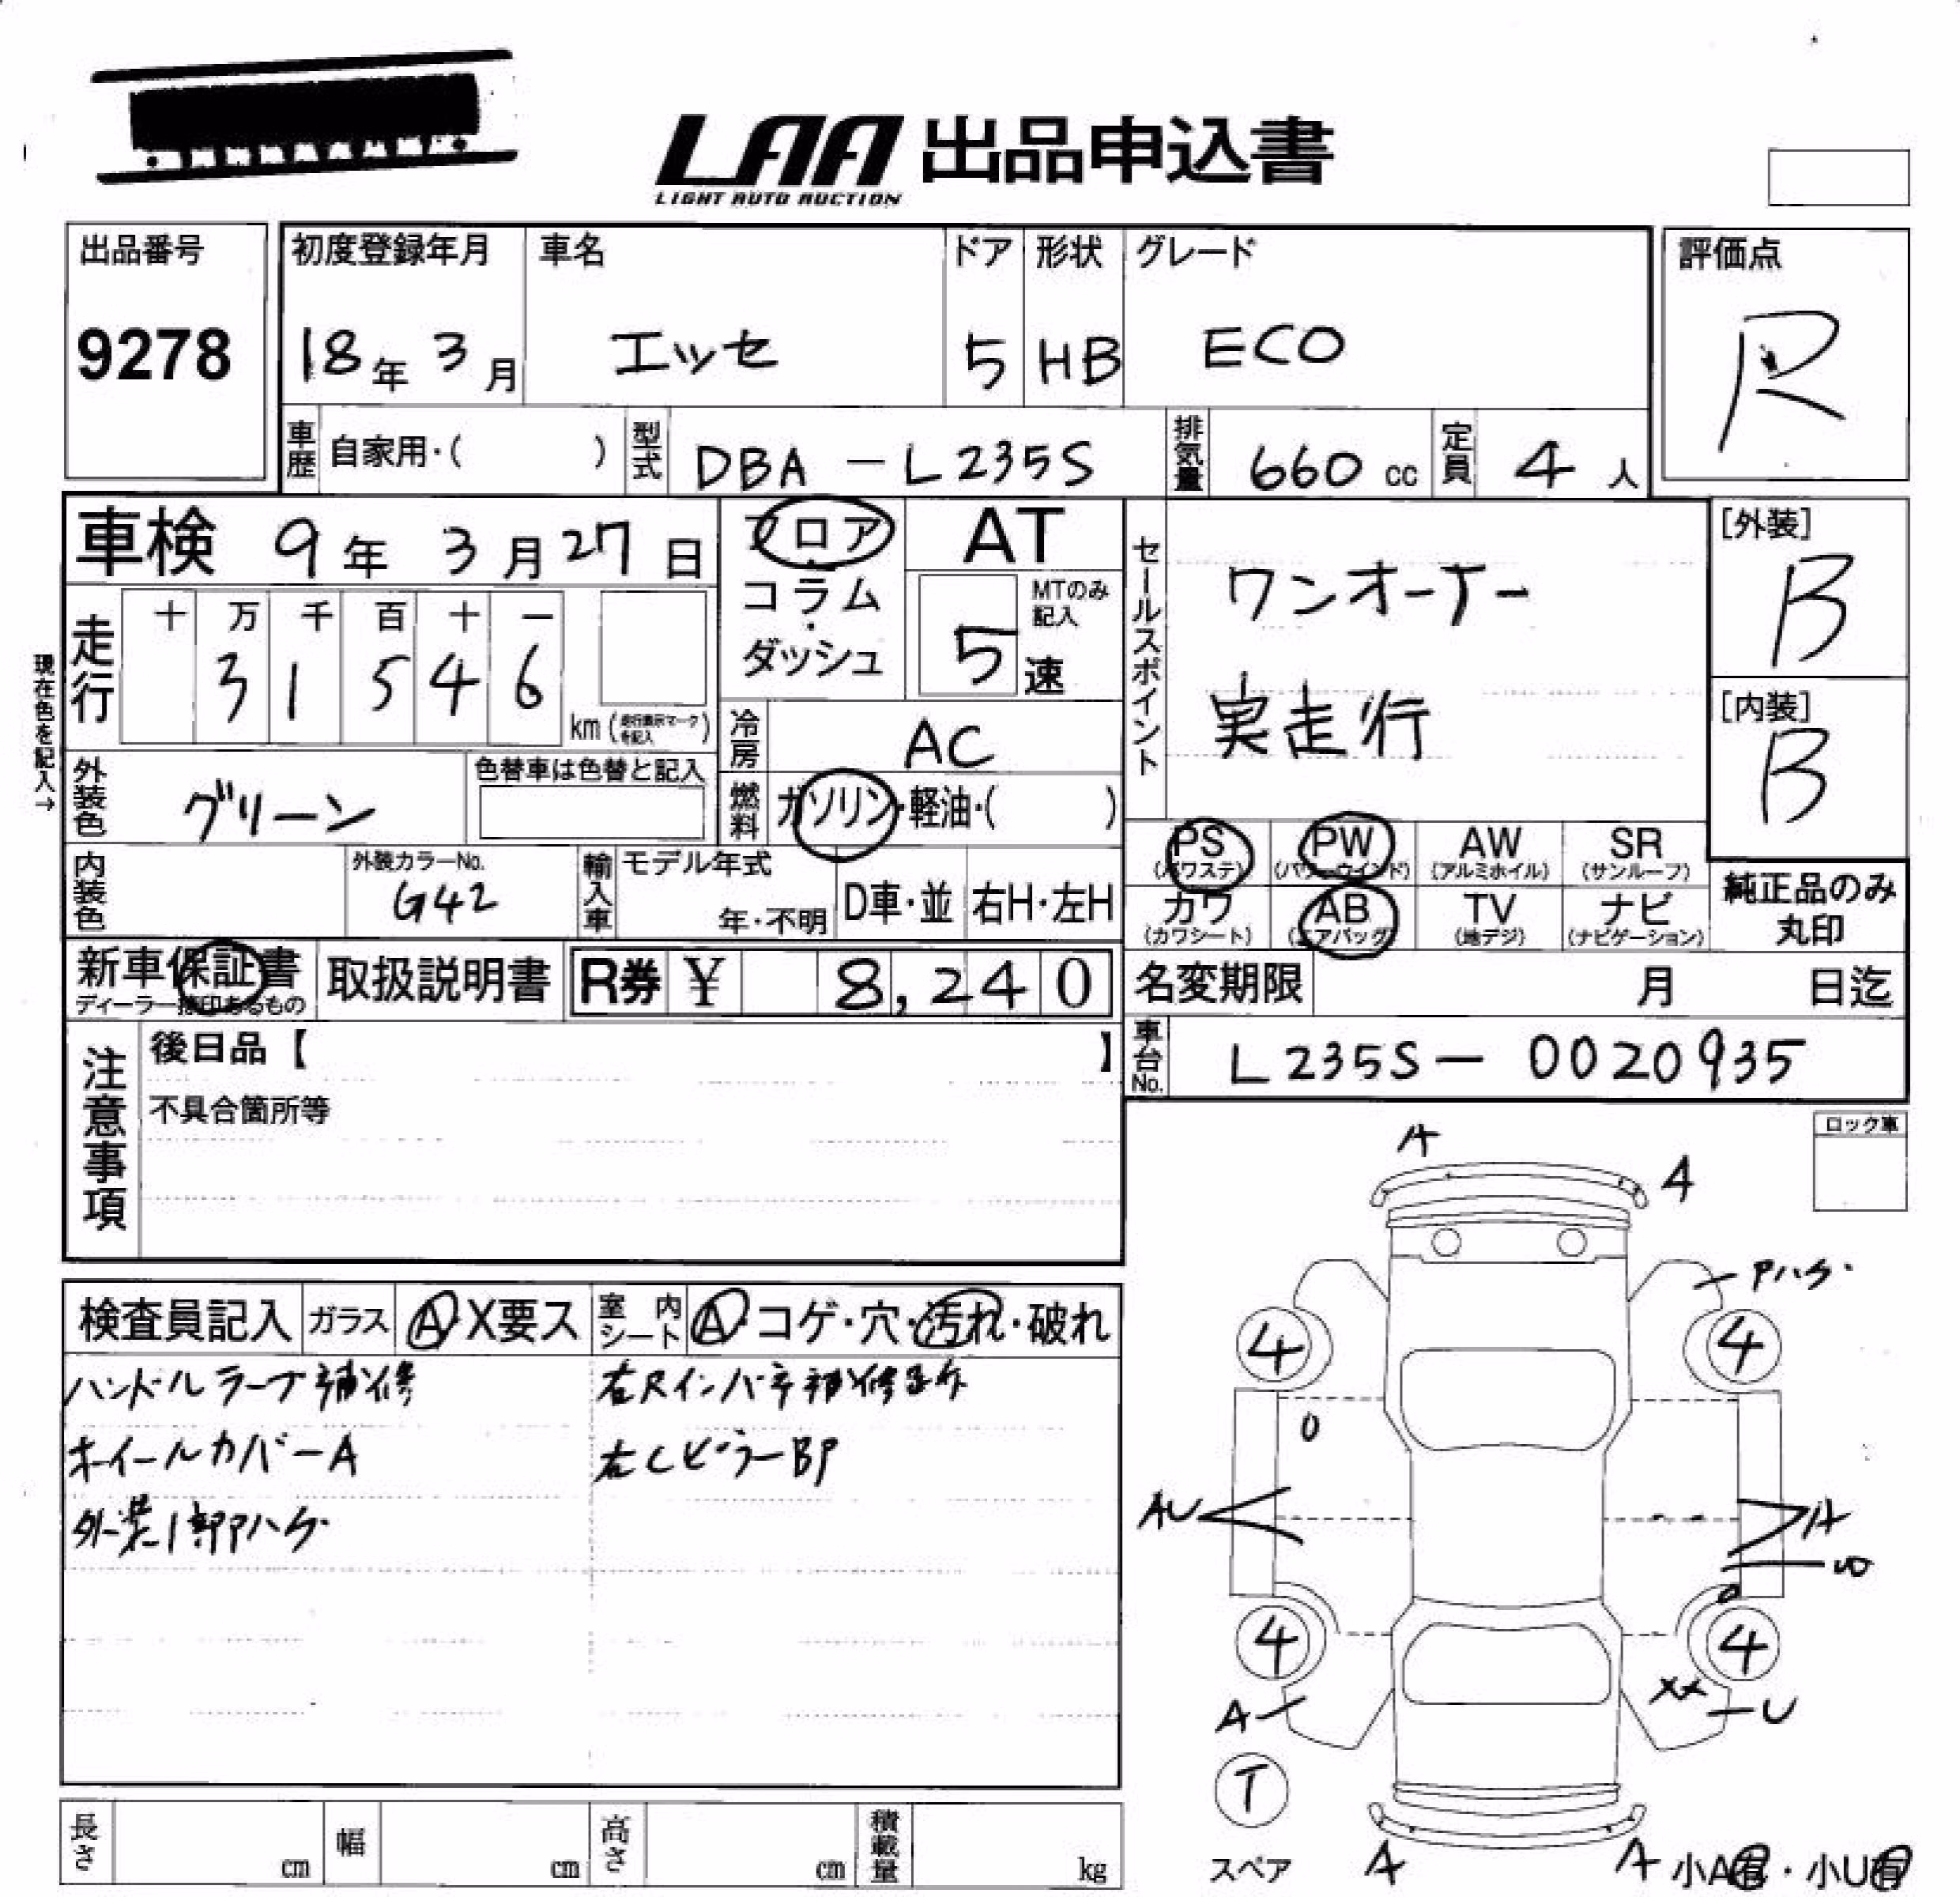 LAA 出品申込書
LIGHT AUTO AUCTION
出品番号
9278
初度登録年月
18年 3月
車名
エッセ
ドア
5
形状
HB
グレード
ECO
評価点
R
車歴 自家用・( )
型式 DBA-L235S
排気量 660 cc
定員 4 人
車検 9年 3月27日
フロア
・
コラム
・
ダッシュ
AT
MTのみ
記入
5 速
セールスポイント
ワンオーナー
実走行
[外装]
B
[内装]
B
現在色を記入→
走行
十 万 千 百 十 一
3 1 5 4 6
km (走行表示マークを記入)
冷房 AC
外装色 グリーン
色替車は色替と記入
燃料 ガソリン・軽油・( )
内装色
外装カラーNo.
G42
輸入車
モデル年式
年・不明
D車・並
右H・左H
PS
(パワステ)
PW
(パワーウインド)
AW
(アルミホイル)
SR
(サンルーフ)
カワ
(カワシート)
AB
(エアバッグ)
TV
(地デジ)
ナビ
(ナビゲーション)
純正品のみ
丸印
新車保証書
ディーラー捺印あるもの
取扱説明書
R券 ¥ 8,240
名変期限 月 日迄
車台No. L235S-0020935
注意事項
後日品【 】
不具合箇所等
ロック車
検査員記入
ガラス A・X要ス
室内シート A・コゲ・穴・汚れ・破れ
ハンドルラーフ補修
ホイールカバーA
外装1部Pハゲ
右Rインパネ補修
右CピラーBP
A
A
Pハゲ
4
4
O
AU
A
U
O
4
4
A
XX
U
T
スペア
A
A
小A有・小U有
長さ cm
幅 cm
高さ cm
積載量 kg